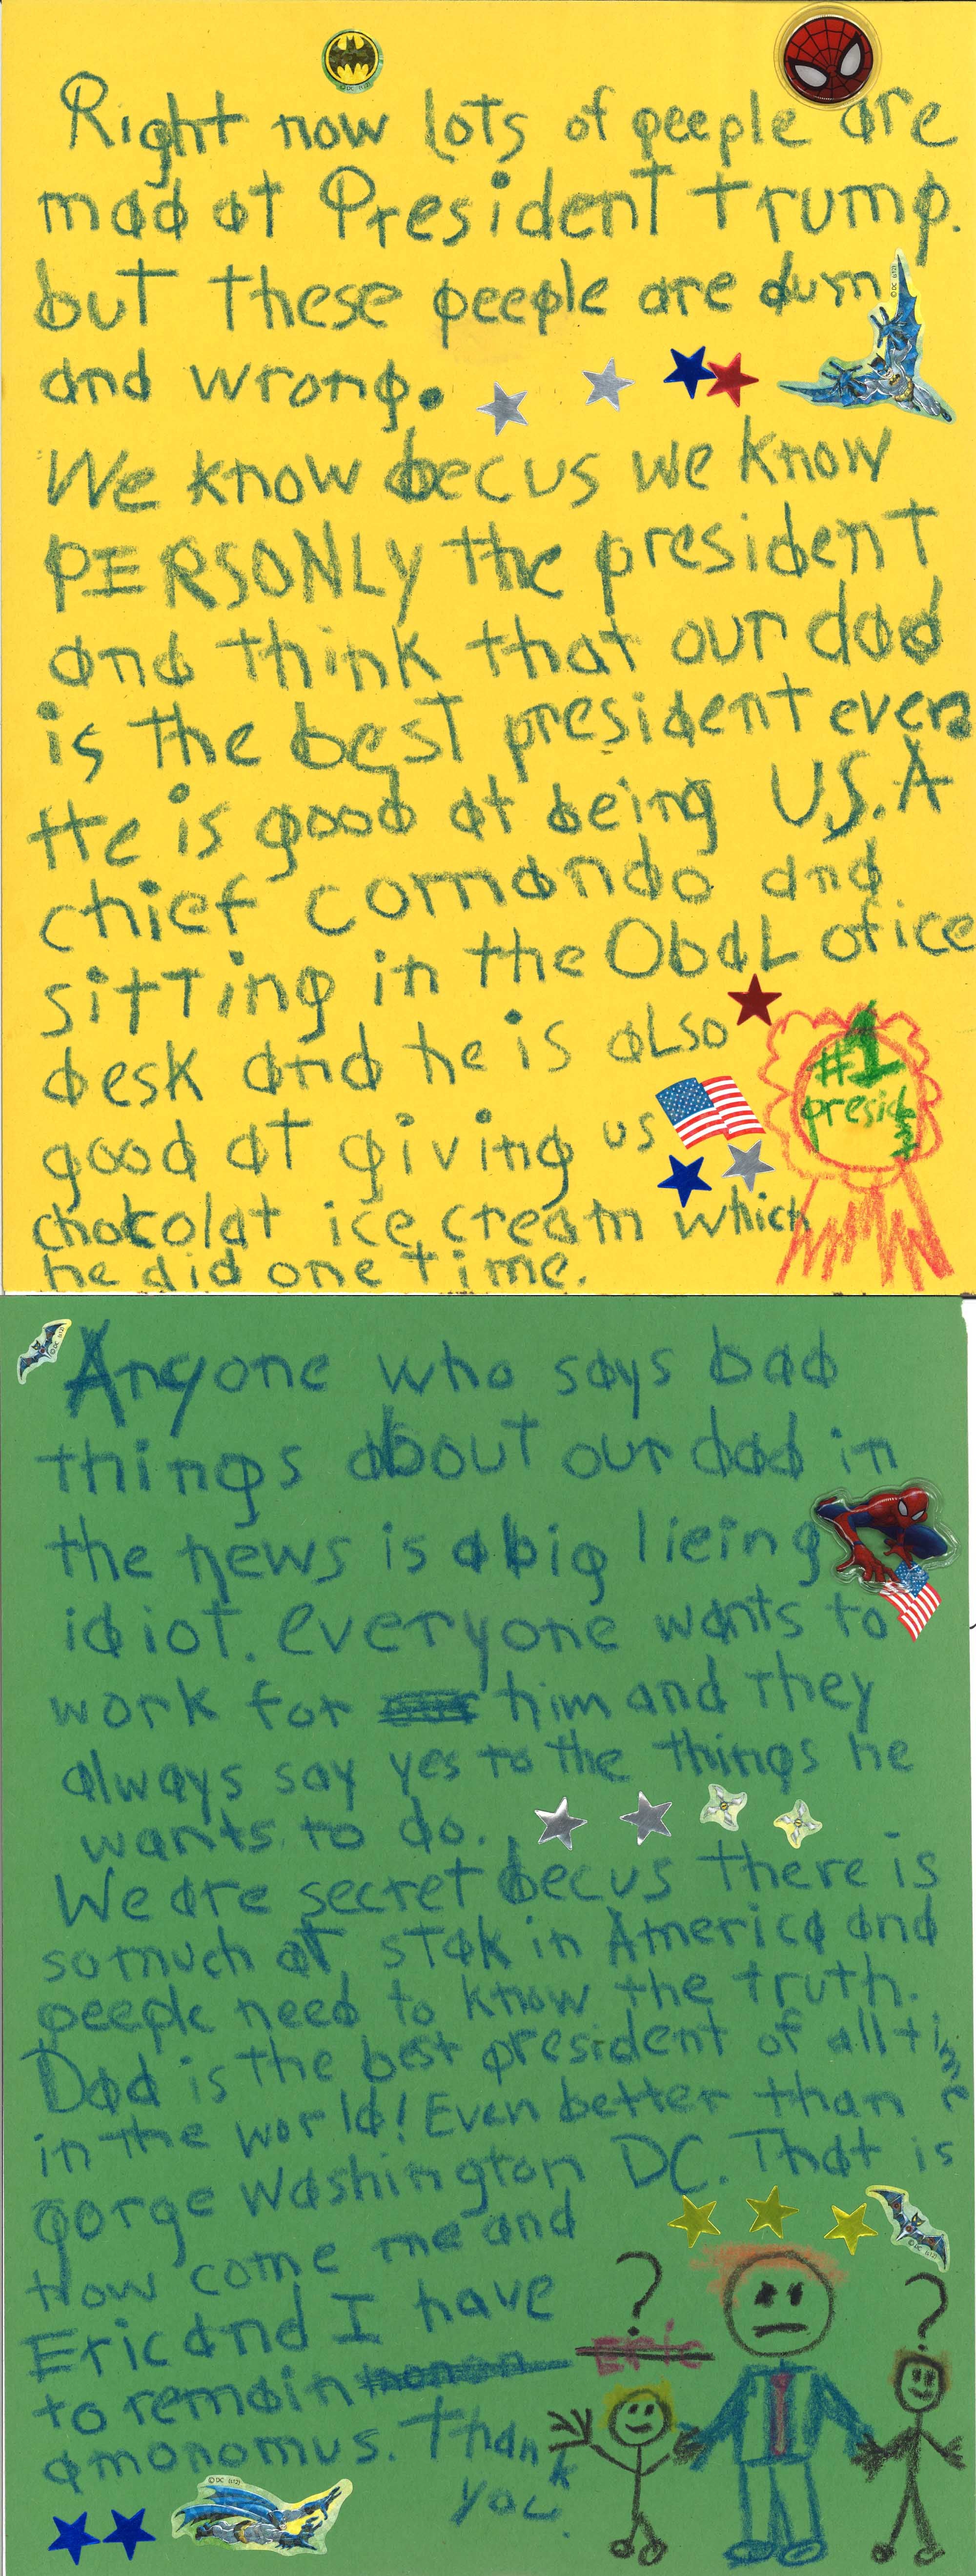 Right now lots of peeple are
mad at President trump.
but these peeple are dum
and wrong.
We know becus we know
PERSONLY the president
and think that our dad
is the best president ever.
He is good at being U.S.A
chief comando and
sitting in the ObaL ofice
desk and he is aLso
good at giving us
chokolat ice cream which
he did one time.
#1
presid
Anyone who says bad
things about our dad in
the news is a big lieing
idiot. everyone wants to
work for him and they
always say yes to the things he
wants to do.
We are secret becus there is
so much at stak in America and
peeple need to know the truth.
Dad is the best president of all time
in the world! Even better than
gorge Washington DC. That is
how come me and
Eric and I have
to remain
amonomus. Thank
you.
?
Eric
?